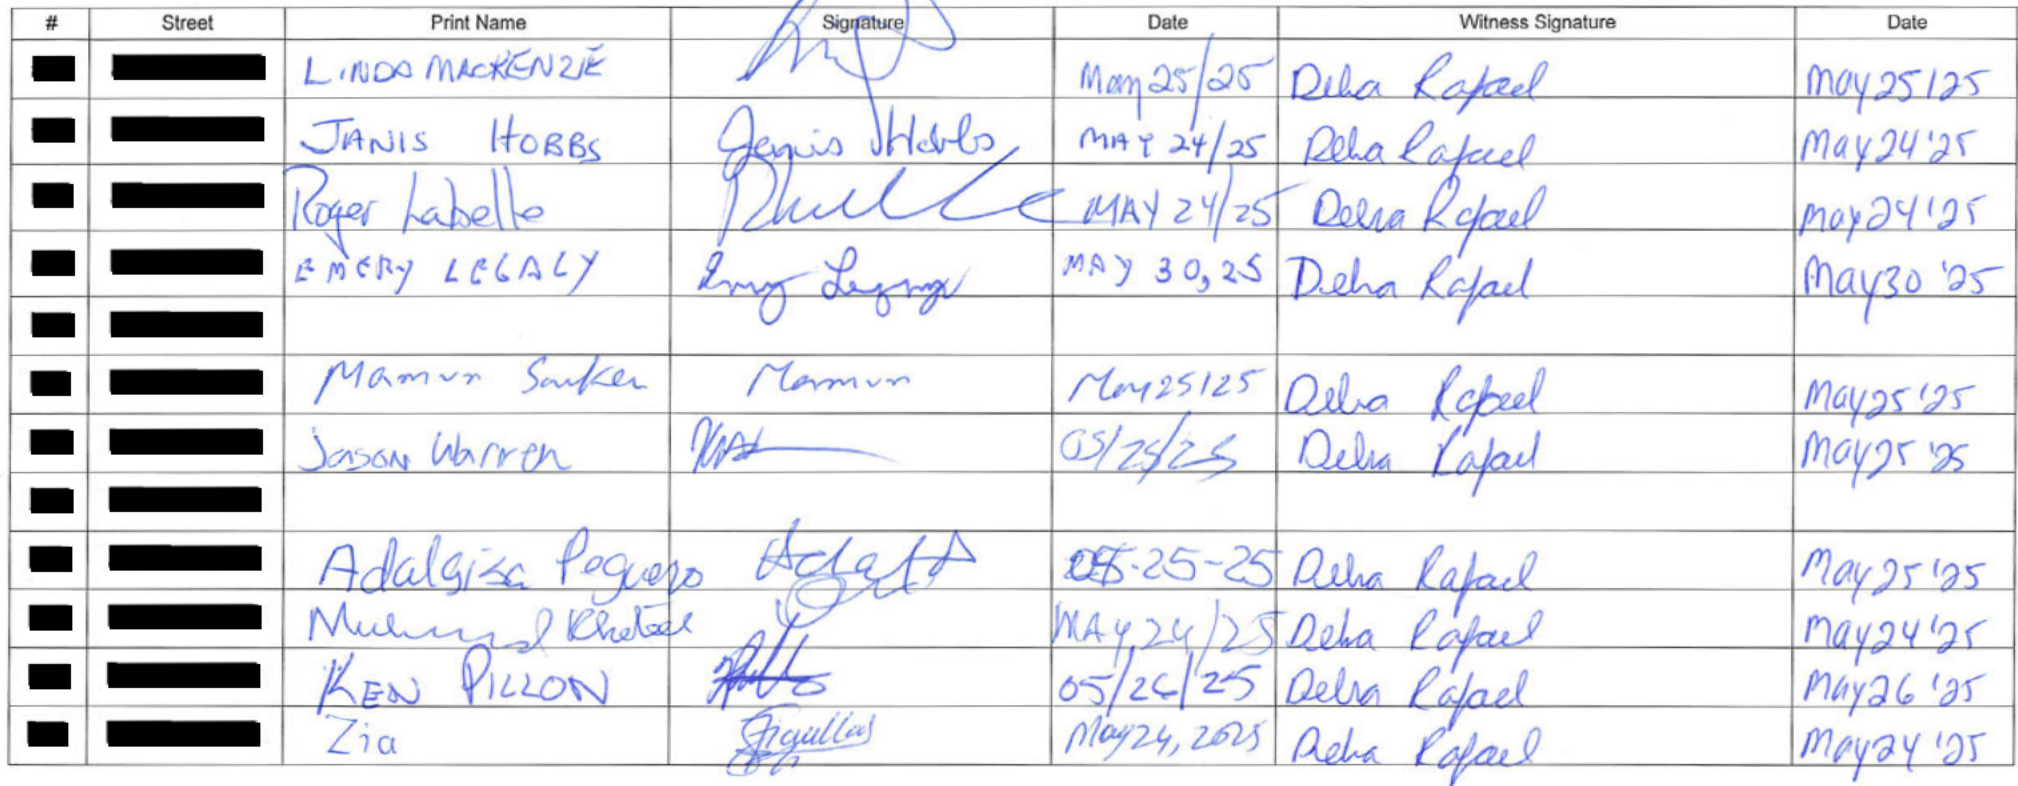 # Street Print Name Signature Date Witness Signature Date
LINDA MACKENZIE May 25/25 Delia Rafael May 25/25
JANIS HOBBS Janis Hobbs MAY 24/25 Delia Rafael May 24 '25
Roger Labelle MAY 24/25 Delia Rafael May 24 '25
EMERY LEGALY MAY 30, 25 Delia Rafael May 30 '25
Mamun Sarker Mamun May 25/25 Delia Rafael May 25 '25
Jason Warren 05/25/25 Delia Rafael May 25 '25
Adalgisa Peguero 05-25-25 Delia Rafael May 25 '25
MAY, 24/25 Delia Rafael May 24 '25
KEN PILLON 05/26/25 Delia Rafael May 26 '25
Zia May 24, 2025 Delia Rafael May 24 '25